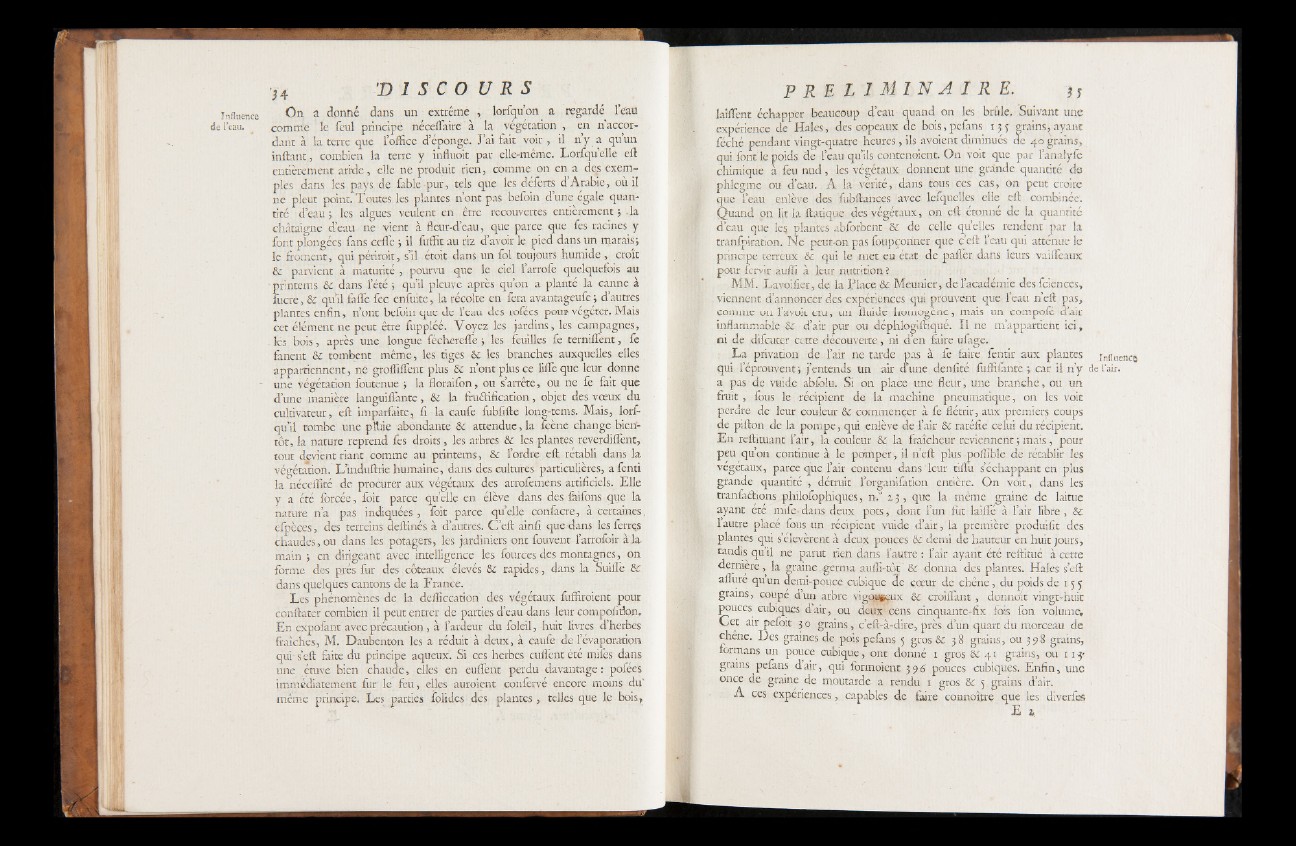 34 DISCOURS
Influence
de l'eau.
On a donné dans un extrême , lorſqu'on a regardé l'eau
comme le ſeul principe néceſſaire à la végétation , en n'accor-
dant à la terre que l'office d'éponge. J'ai fait voir , il n'y a qu'un
inſtant, combien la terre y influoit par elle-même. Lorſqu'elle eſt
entièrement aride, elle ne produit rien, comme on en a des exem-
ples dans les pays de ſable pur, tels que les déſerts d'Arabie, où il
ne pleut point. Toutes les plantes n'ont pas beſoin d'une égale quan-
tité d'eau ; les algues veulent en être recouvertes entièrement ; la
châtaigne d'eau ne vient à fleur-d'eau, que parce que ſes racines y
ſont plongées ſans ceſſe ; il ſuffit au riz d'avoir le pied dans un marais;
le froment, qui périroit, s'il étoit dans un ſol toujours humide , croît
& parvient à maturité , pourvu que le ciel l'arroſe quelquefois au
printems & dans l'été ; qu'il pleuve après qu'on a planté la canne à
ſucre, & qu'il faſſe ſec enſuite, la récolte en ſera avantageuſe ; d'autres
plantes enfin, n'ont beſoin que de l'eau des roſées pour végéter. Mais
cet élément ne peut être ſuppléé. Voyez les jardins, les campagnes,
les bois, après une longue ſéchereſſe ; les feuilles ſe terniſſent, ſe
fanent & tombent même, les tiges & les branches auxquelles elles
appartiennent, ne groſſiſſent plus & n'ont plus ce liſſe que leur donne
une végétation ſoutenue ; la floraiſon, ou s'arrête, ou ne ſe fait que
d'une manière languiſſante, & la fructification , objet des vœux du
cultivateur, eſt imparfaite, ſi la cauſe ſubſiſte long-tems. Mais, lorſ-
qu'il tombe une pluie abondante & attendue, la ſcène change bien-
tôt, la nature reprend ſes droits, les arbres & les plantes reverdiſſent,
tout devient riant comme au printems, & l'ordre eſt rétabli dans la
végétation. L'induſtrie humaine, dans des cultures particulières, a ſenti
la néceſſité de procurer aux végétaux des arroſemens artificiels. Elle
y a été forcée, ſoit parce qu'elle en élève dans des ſaiſons que la
nature n'a pas indiquées , ſoit parce qu'elle conſacre, à certaines
eſpèces, des terreins deſtinés à d'autres. C'eſt ainſi que dans les ſerres
chaudes, ou dans les potagers, les jardiniers ont ſouvent l'arroſoir à la
main ; en dirigeant avec intelligence les ſources des montagnes, on
forme des prés ſur des côteaux élevés & rapides, dans la Suiſſe &
dans quelques cantons de la France.
Les phénomènes de la deſſiccation des végétaux ſuffiroient pour
conſtater combien il peut entrer de parties d'eau dans leur compoſition.
En expoſant avec précaution, à l'ardeur du ſoleil, huit livres d'herbes
fraîches, M. Daubenton les a réduit à deux, à cauſe de l'évaporation
qui s'eſt faite du principe aqueux. Si ces herbes euſſent été miſes dans
une étuve bien chaude, elles en euſſent perdu davantage : poſées
immédiatement ſur le feu, elles auroient conſervé encore moins du
même principe. Les parties ſolides des plantes , telles que le bois,
PRELIMINAIRE. 35
laiſſent échapper beaucoup d'eau quand on les brûle. Suivant une
expérience de Hales, des copeaux de bois, peſans 135 grains, ayant
ſéché pendant vingt-quatre heures, ils avoient diminués de 40 grains,
qui ſont le poids de l'eau qu'ils contenoient. On voit que par l'analyſe
chimique à feu nud, les végétaux donnent une grande quantité de
phlegme ou d'eau. A la vérité, dans tous ces cas, on peut croire
que l'eau enlève des ſubſtances avec leſquelles elle eſt combinée.
Quand on lit la ſtatique des végétaux, on eſt étonné de la quantité
d'eau que les plantes abſorbent & de celle qu'elles rendent par la
tranſpiration. Ne peut-on pas ſoupçonner que c'eſt l'eau qui atténue le
principe terreux & qui le met en état de paſſer dans leurs vaiſſeaux
pour ſervir auſſi à leur nutrition ?
MM. Lavoiſier, de la Place & Meunier, de l'académie des ſciences,
viennent d'annoncer des expériences qui prouvent que l'eau n'eſt pas,
comme on l'avoit cru, un fluide homogène, mais un compoſé d'air
inflammable & d'air pur ou déphlogiſtiqué. Il ne m'appartient ici,
ni de diſcuter cette découverte, ni d'en faire uſage.
La privation de l'air ne tarde pas à ſe faire ſentir aux plantes
Influence
de l'air.
qui l'éprouvent ; j'entends un air d'une denſité ſuffiſante ; car il n'y
a pas de vuide abſolu. Si on place une fleur, une branche, ou un
fruit, ſous le récipient de la machine pneumatique, on les voit
perdre de leur couleur & commencer à ſe flétrir, aux premiers coups
de piſton de la pompe, qui enlève de l'air & raréfie celui du récipient.
En reſtituant l'air, la couleur & la fraîcheur reviennent ; mais, pour
peu qu'on continue à le pomper, il n'eſt plus poſſible de rétablir les
végétaux, parce que l'air contenu dans leur tiſſu s'échappant en plus
grande quantité , détruit l'organiſation entière. On voit, dans les
tranſactions philoſophiques, n.° 23, que la même graine de laitue
ayant été miſe dans deux pots, dont l'un fut laiſſé à l'air libre, &
l'autre placé ſous un récipient vuide d'air, la première produiſit des
plantes qui s'élevèrent à deux pouces & demi de hauteur en huit jours,
tandis qu'il ne parut rien dans l'autre : l'air ayant été reſtitué à cette
dernière, la graine germa auſſi-tôt & donna des plantes. Hales s'eſt
aſſuré qu'un demi-pouce cubique de cœur de chêne, du poids de 155
grains, coupé d'un arbre vigoureux & croiſſant, donnoit vingt-huit
pouces cubiques d'air, ou deux cens cinquante-ſix fois ſon volume,
Cet air peſoit 30 grains, c'eſt-à-dire, près d'un quart du morceau de
chêne. Des graines de pois peſans 5 gros & 38 grains, ou 398 grains,
formans un pouce cubique, ont donné 1 gros & 41 grains, ou 113
grains peſans d'air, qui formoient 396 pouces cubiques. Enfin, une
once de graine de moutarde a rendu 1 gros & 5 grains d'air.
A ces expériences, capables de faire connoître que les diverſes
E 2